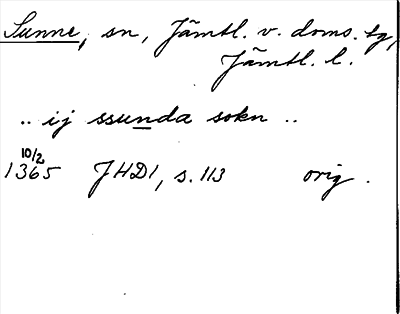 Sunne, sn, Jämtl. v. doms. tg,
Jämtl. l.
.. ij ssunda sokn ..
10/2
1365 JHD1, s. 113 orig.